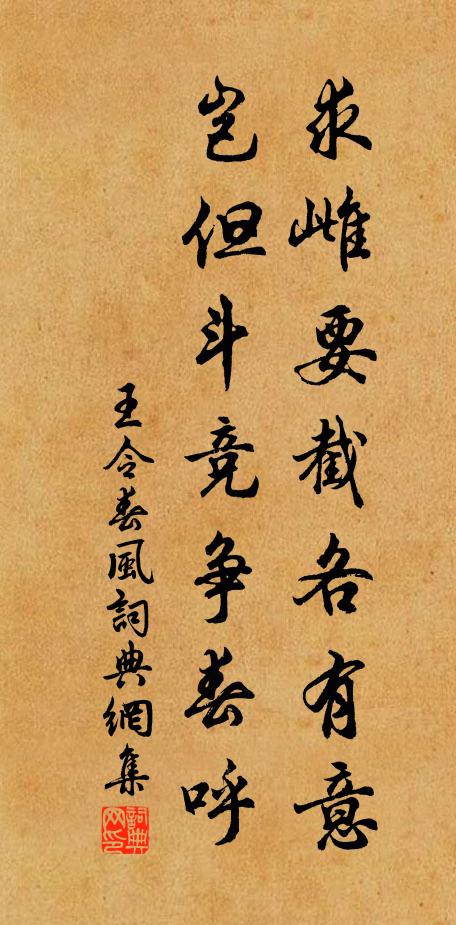 求雌要截各有意
岂但斗竞争春呼
王令春風詞典網集
詞典网印